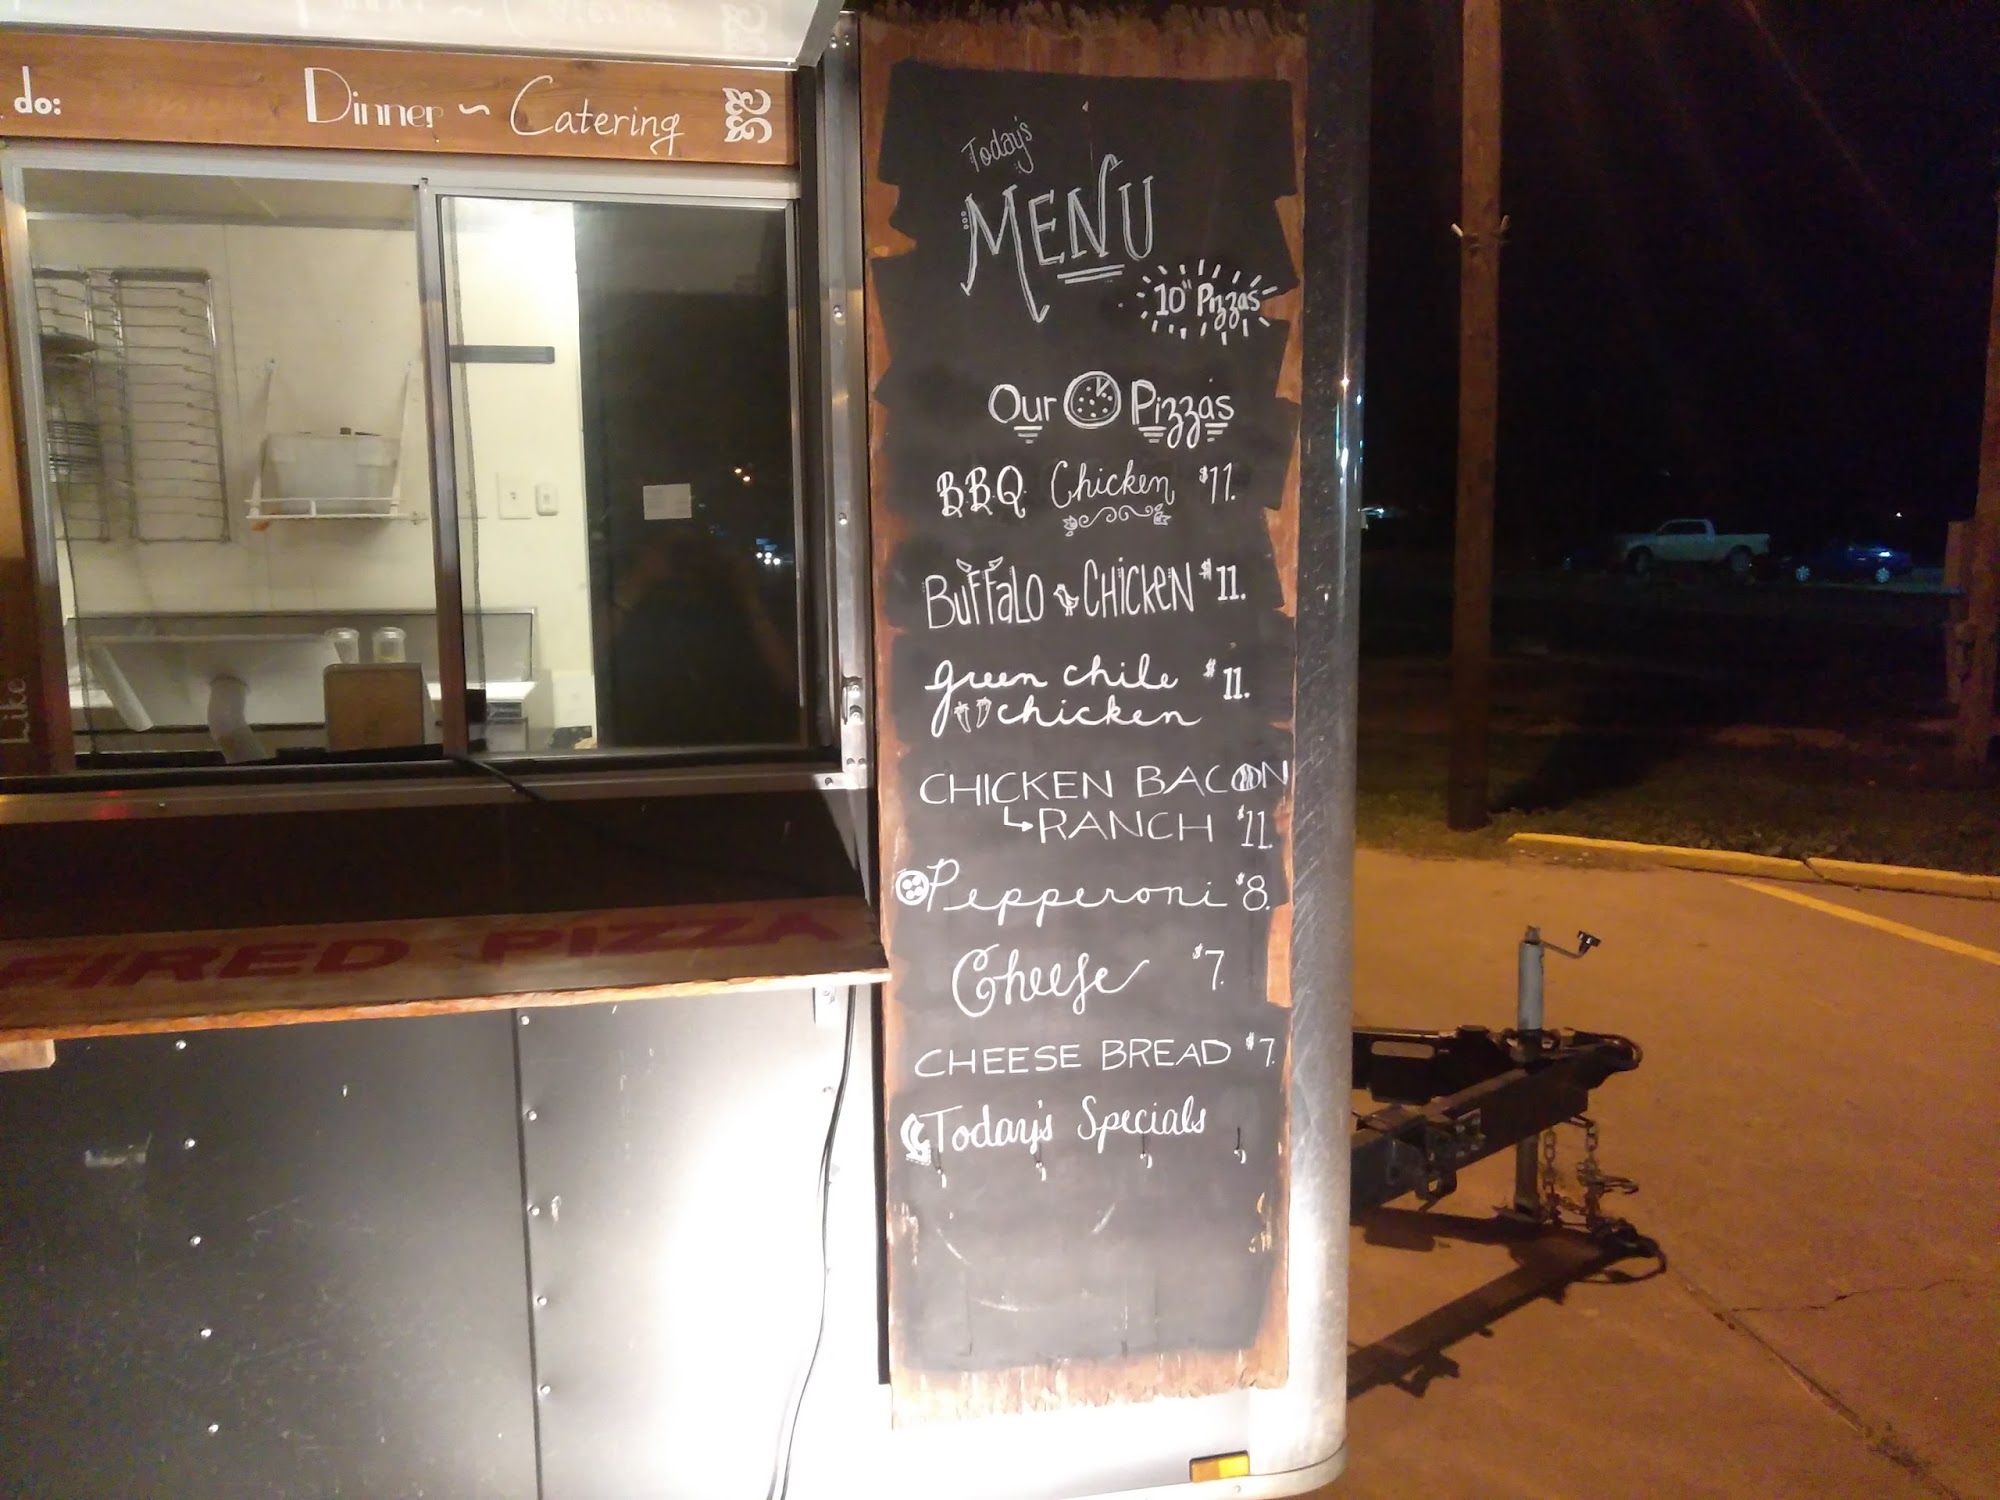 do:
Dinner ~ Catering
Like
FIRED PIZZA
Today's
MENU
10" Pizzas
Our Pizzas
BBQ Chicken $11.
Buffalo CHICKEN $11.
green chile $11.
chicken
CHICKEN BACON
RANCH $11.
Pepperoni $8.
Cheese $7.
CHEESE BREAD $7.
Today's Specials